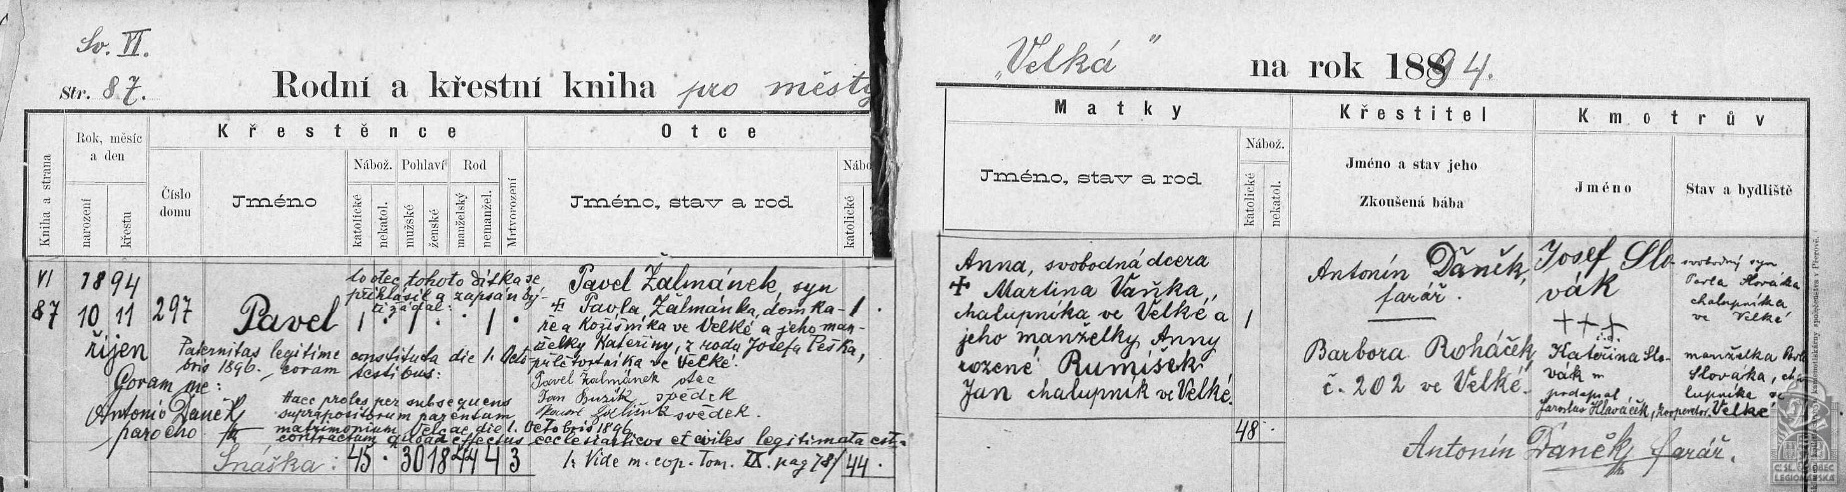 Sv. VI.
Str. 87.
Rodní a křestní kniha pro městy
"Velká" na rok 1894.
Kniha a strana
Rok, měsíc a den
narození
křestu
Křestěnce
Číslo domu
Jméno
Nábož.
katolické
nekatol.
Pohlaví
mužské
ženské
Rod
manželský
nemanžel.
Mrtvorození
Otce
Jméno, stav a rod
Nábo
katolické
Matky
Jméno, stav a rod
Nábož.
katolické
nekatol.
Křestitel
Jméno a stav jeho
Zkoušená bába
Kmotrův
Jméno
Stav a bydliště
VI 1894
87 10 11 297
říjen
Pavel 1 · 1 · · 1 ·
co otec tohoto dítka se
přihlásil a zapsán bý-
ti žádal:
Pavel Žalmánek, syn
✠ Pavla Žalmánka, domka-
ře a kožišníka ve Velké a jeho man-
želky Kateřiny, z rodu Josefa Peška,
ve Velké.
1 ·
Paternitas legitime constituta die 1. Octo-
bris 1896., coram testibus:
Coram me:
Antonio Daněk
parocho
Pavel Žalmánek otec
svědek
svědek.
Haec proles per subsequens
suprapositorum parentum
matrimonium Velcae, die 1. Octobris 1896
contractum quoad effectus ecclesiasticos et civiles legitimata est.
Snáška: 45 · 30 18 44 4 3
Vide m. cop. Tom. IX. pag 78/
44 ·
Anna, svobodná dcera
✠ Martina Vaňka,
chalupníka ve Velké a
jeho manželky Anny
rozené Rumíšek
Jan chalupník ve Velké.
1
48 ·
Antonín Daněk,
farář.
Barbora Roháček
č. 202 ve Velké.
Josef Slo-
vák
+++
Kateřina Slo-
vák
podepsal
Jaroslav Hlaváček, kooperator.
svobodný syn
Pavla Slováka
chalupníka
ve Velké
manželka Pavla
Slováka, cha-
lupníka ve
Velké
Antonín Daněk farář.
ČS. OBEC
LEGIONÁŘSKÁ